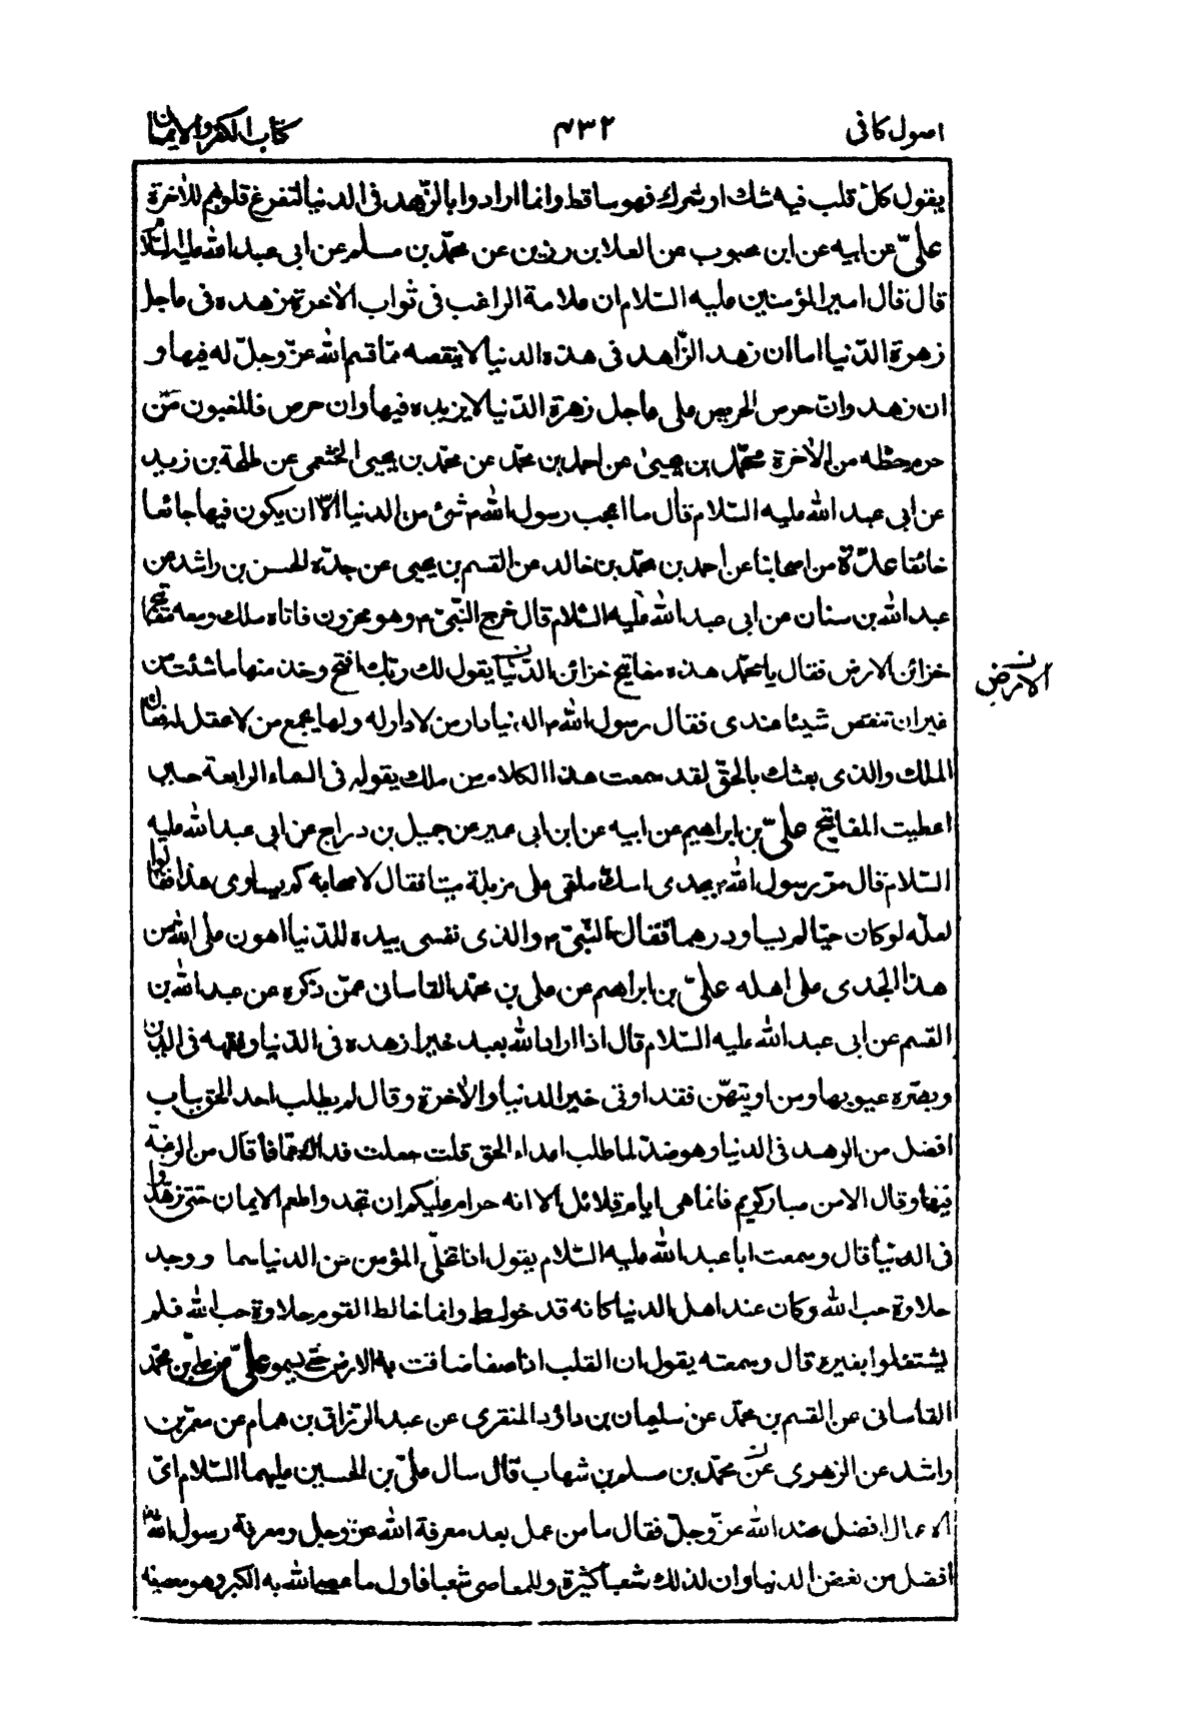 اصول كافى
۴۳۲
كتاب الكفر والايمان
يقول كلّ قلب فيه شك او شرك فهو ساقط وانما ارادوا بالزّهد فى الدنيا لتفرغ قلوبهم للاٰخرة
علىّ عن ابيه عن ابن محبوب عن العلا بن رزين عن محمّد بن مسلم عن ابى عبد الله عليه السّلام
قال قال امير المؤمنين عليه السّلام ان علامة الراغب فى ثواب الاٰخرة زهده فى عاجل
زهرة الدّنيا اما ان زهد الزّاهد فى هذه الدنيا لا ينقصه ممّا قسم الله عزّ وجلّ له فيها و
ان زهد وان حرص الحريص على عاجل زهرة الدّنيا لا يزيده فيها وان حرص فالمغبون من
حرم حظّه من الاٰخرة محمّد بن يحيىٰ عن احمد بن محمّد عن محمّد بن يحيى الخثعمى عن طلحة بن زيد
عن ابى عبد الله عليه السّلام قال ما اعجب رسول الله م شئ من الدنيا الّا ان يكون فيها جائعا
خائفا عدّة من اصحابنا عن احمد بن محمّد بن خالد عن القسم بن يحيى عن جدّه الحسن بن راشد عن
عبد الله بن سنان عن ابى عبد الله عليه السّلام قال خرج النّبىّ م وهو محزون فاتاه ملك ومعه مفاتيح
خزائن الارض فقال يا محمّد هذه مفاتيح خزائن الدّنيا يقول لك ربّك افتح وخذ منها ما شئت من
الارض
غير ان تنقص شيئا عندى فقال رسول الله م الدنيا دار من لا دار له ولها يجمع من لا عقل له فقال
الملك والذى بعثك بالحقّ لقد سمعت هذا الكلام من ملك يقوله فى السماء الرابعة حين
اعطيت المفاتيح علىّ بن ابراهيم عن ابيه عن ابن ابى عمير عن جميل بن دراج عن ابى عبد الله عليه
السّلام قال مرّ رسول الله م بجدى اسك ملقى على مزبلة ميتا فقال لاصحابه كم يساوى هذا فقالوا
لعلّه لو كان حيّا لم يساو درهما فقال النّبىّ م والذى نفسى بيده للدّنيا اهون على الله من
هذا الجدى على اهله علىّ بن ابراهيم عن على بن محمّد القاسانى عمّن ذكره عن عبد الله بن
القسم عن ابى عبد الله عليه السّلام قال اذا اراد الله بعبد خيرا زهده فى الدّنيا وفقهه فى الدين
وبصّره عيوبها ومن اوتيهنّ فقد اوتى خير الدنيا والاٰخرة وقال لم يطلب احد الحق بباب
افضل من الزهد فى الدنيا وهو ضدّ لما طلب اعداء الحق قلت جعلت فداك ممّا ذا قال من الرغبة
فيها وقال الا من صبار كريم فانما هى ايام قلائل الا انه حرام عليكم ان تجدوا طعم الايمان حتى تزهدوا
فى الدنيا قال وسمعت ابا عبد الله عليه السّلام يقول اذا تخلّى المؤمن من الدنيا سما ووجد
حلاوة حب الله وكان عند اهل الدنيا كانه قد خولط وانما خالط القوم حلاوة حب الله فلم
يشتغلوا بغيره قال وسمعته يقول ان القلب اذا صفا ضاقت به الارض حتى يسمو علىّ عن على بن محمّد
القاسانى عن القسم بن محمّد عن سليمان بن داؤد المنقرى عن عبد الرّزاق بن همام عن معمر بن
راشد عن الزهرى عن محمّد بن مسلم بن شهاب قال سال علىّ بن الحسين عليهما السّلام اىّ
الاعمال افضل عند الله عزّ وجلّ فقال ما من عمل بعد معرفة الله عزّ وجل ومعرفة رسول الله
افضل من بغض الدنيا وان لذلك شعبا كثيرة وللمعاصى شعبا فاول ما عصى الله به الكبر وهو معصية